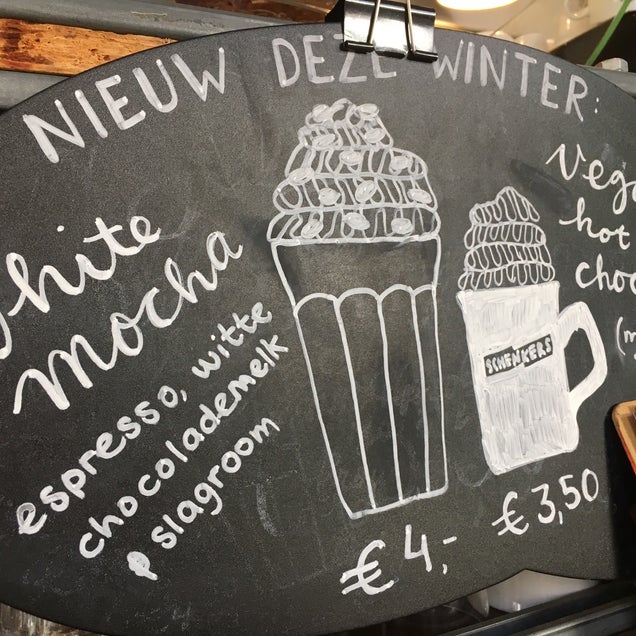 NIEUW DEZE WINTER:
White
mocha
espresso, witte
chocolademelk
& slagroom
€ 4,-
Vega
hot
choc
(m
SCHENKERS
€ 3,50